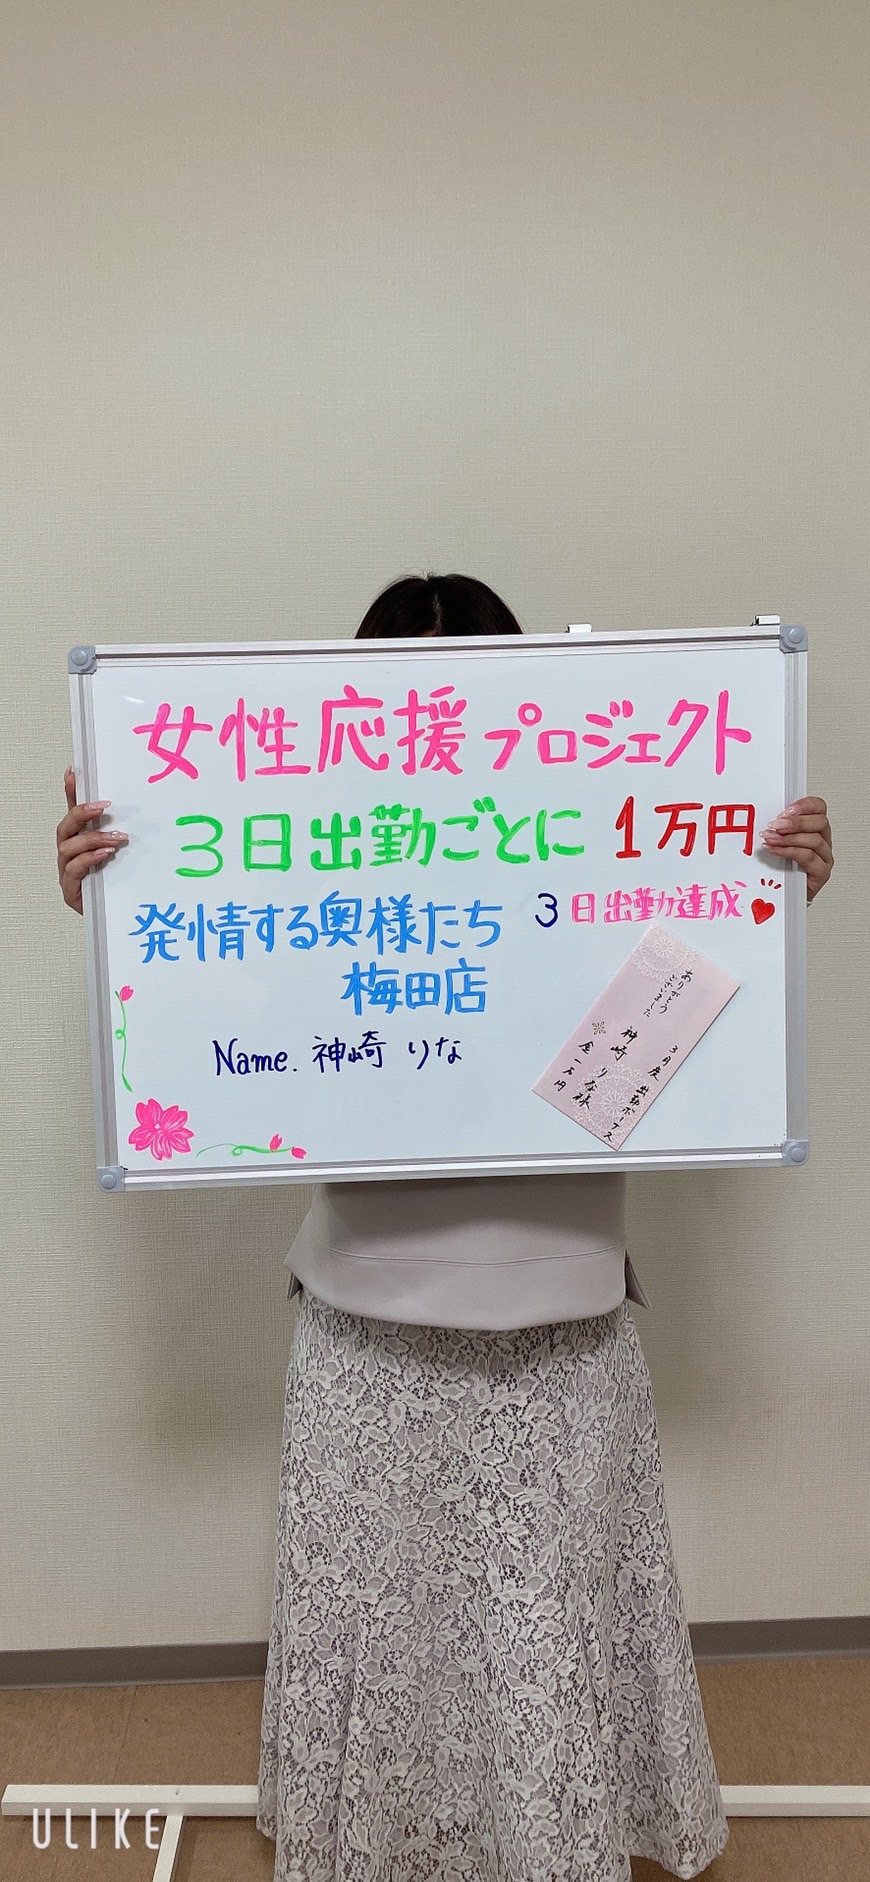 女性応援プロジェクト
3日出勤ごとに 1万円
発情する奥様たち
梅田店
3日出勤達成
Name. 神崎 りな
ありがとう
ございました
3月度 出勤ボーナス
神崎 りな様
金一万円
ULIKE